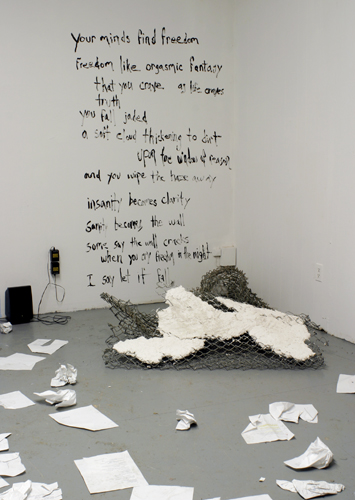 your minds find freedom
freedom like orgasmic fantasy
that you crave as life craves
truth
you fall jaded
a soft cloud thickening to dust
upon the window of reason
and you wipe the haze away
insanity becomes clarity
Sanity becomes the wall
some say the wall cracks
when you say freedom in the night
I say let it fall